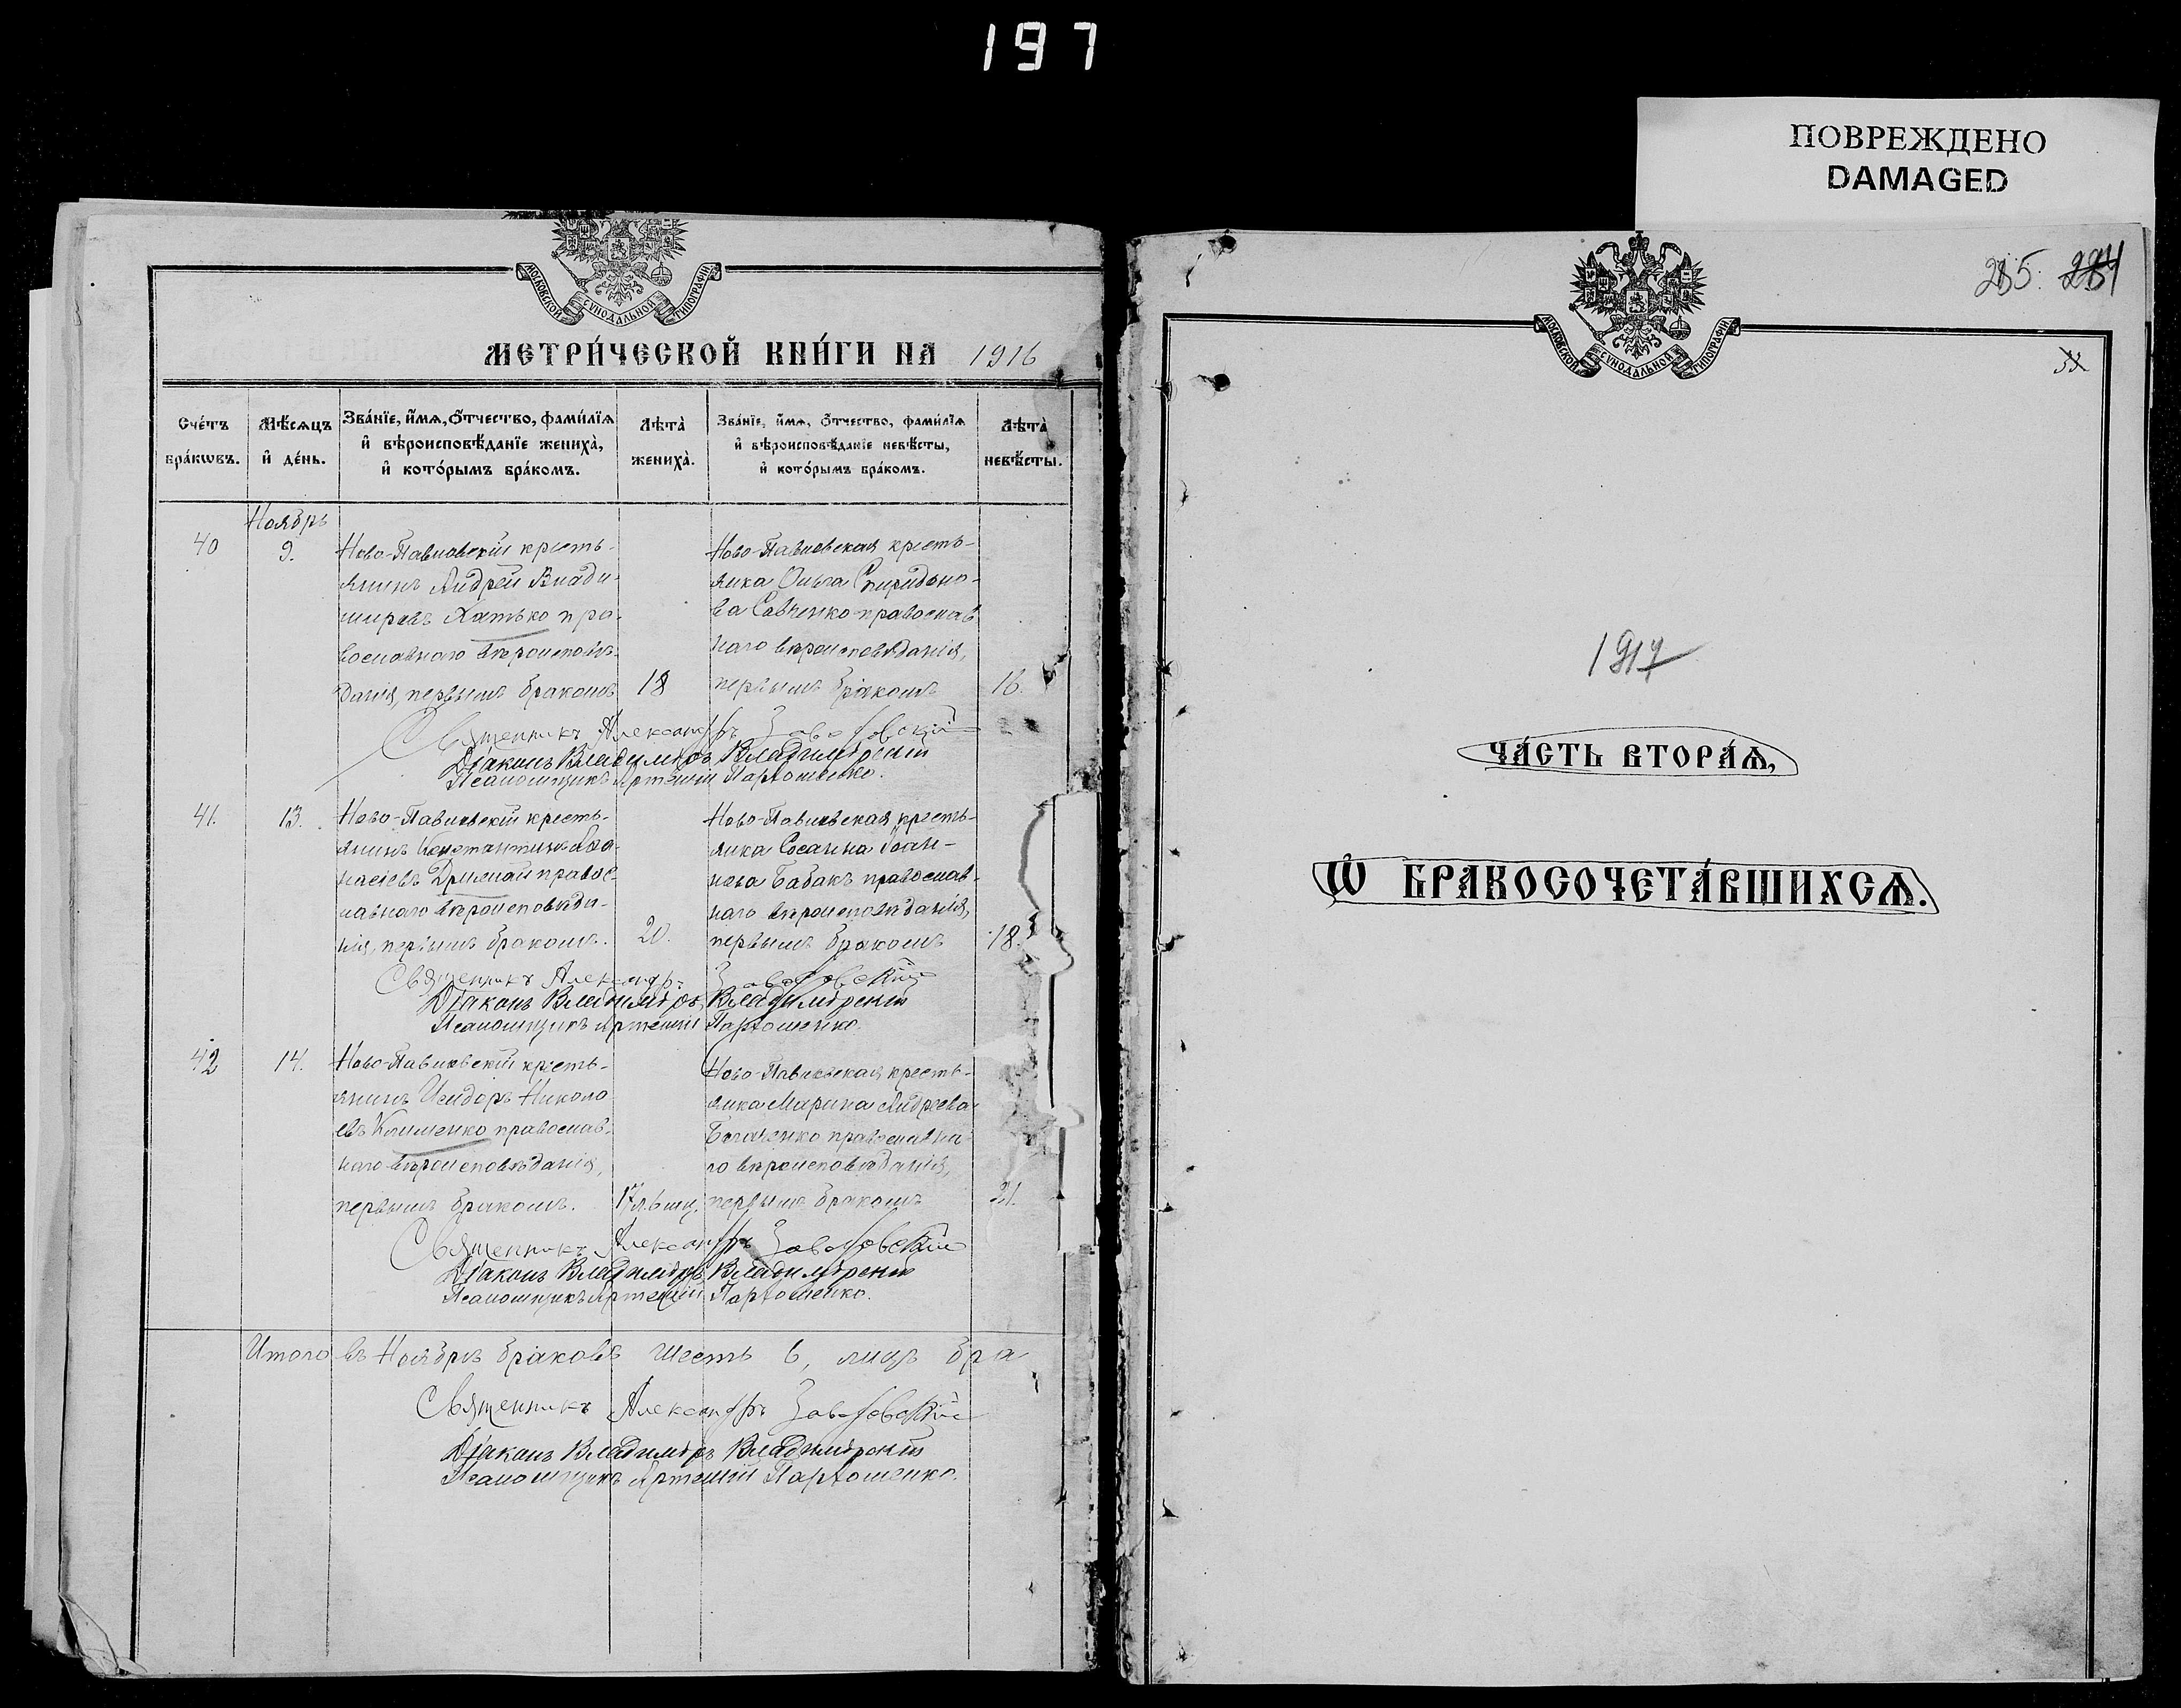 197
ПОВРЕЖДЕНО
DAMAGED
МОСКОВСКОЙ СУНОДАЛЬНОЙ ТИПОГРАФІИ
МЕТРИ́ЧЕСКОЙ КНИ́ГИ НА 1916
Сче́тъ бра́кωвъ.
Мѣ́сяцъ и҆ де́нь.
Зва́нїе, и҆́мѧ, ѻ҆́тчество, фами́лїѧ
и҆ вѣроисповѣ́данїе жениха̀,
и҆ кото́рымъ бра́комъ.
Лѣта̀ жениха̀.
Зва́нїе, и҆́мѧ, ѻ҆́тчество, фами́лїѧ
и҆ вѣроисповѣ́данїе невѣ́сты,
и҆ кото́рымъ бра́комъ.
Лѣта̀ невѣ́сты.
Ноябрь
40
9.
Ново-Павловскій кресть-
янинъ Андрей Влади-
міровъ Хатько пра-
вославнаго вѣроисповѣ-
данія, первымъ бракомъ
18
Ново-Павловская кресть-
янка Ольга Спиридоно-
ва Савченко православ
наго вѣроисповѣданія,
первымъ бракомъ
16.
Священникъ Александръ
Діаконъ Владиміръ Владимірскій
Псаломщикъ Артемій Пархоменко.
41.
13.
Ново-Павловскій кресть-
янинъ Константинъ Аѳа-
насіевъ правос-
лавнаго вѣроисповѣда-
нія, первымъ бракомъ.
20.
Ново-Павловская кресть-
янка Сосанна Іоан-
нова Бабакъ православ-
наго вѣроисповѣданія,
первымъ бракомъ
18.
Священникъ Александръ
Діаконъ Владиміръ Владимірскій
Псаломщикъ Артемій Пархоменко.
42
14.
Ново-Павловскій кресть-
янинъ Исидоръ Никола
евъ Клименко православ-
наго вѣроисповѣданія,
первымъ бракомъ.
17л.6мц.
Ново-Павловская кресть-
янка Марина Андреева
Богаченко православна-
го вѣроисповѣданія,
первымъ бракомъ
21.
Священникъ Александръ
Діаконъ Владиміръ Владимірскій
Псаломщикъ Артемій Пархоменко.
Итого въ Ноябрѣ браковъ шесть 6, лицъ бра
Священникъ Александръ
Діаконъ Владиміръ Владимірскій
Псаломщикъ Артемій Пархоменко.
285. 284
МОСКОВСКОЙ СУНОДАЛЬНОЙ ТИПОГРАФІИ
1917
ЧА́СТЬ ВТОРА́Ѧ,
Ѡ҆ БРАКОСОЧЕТА́ВШИХСѦ.